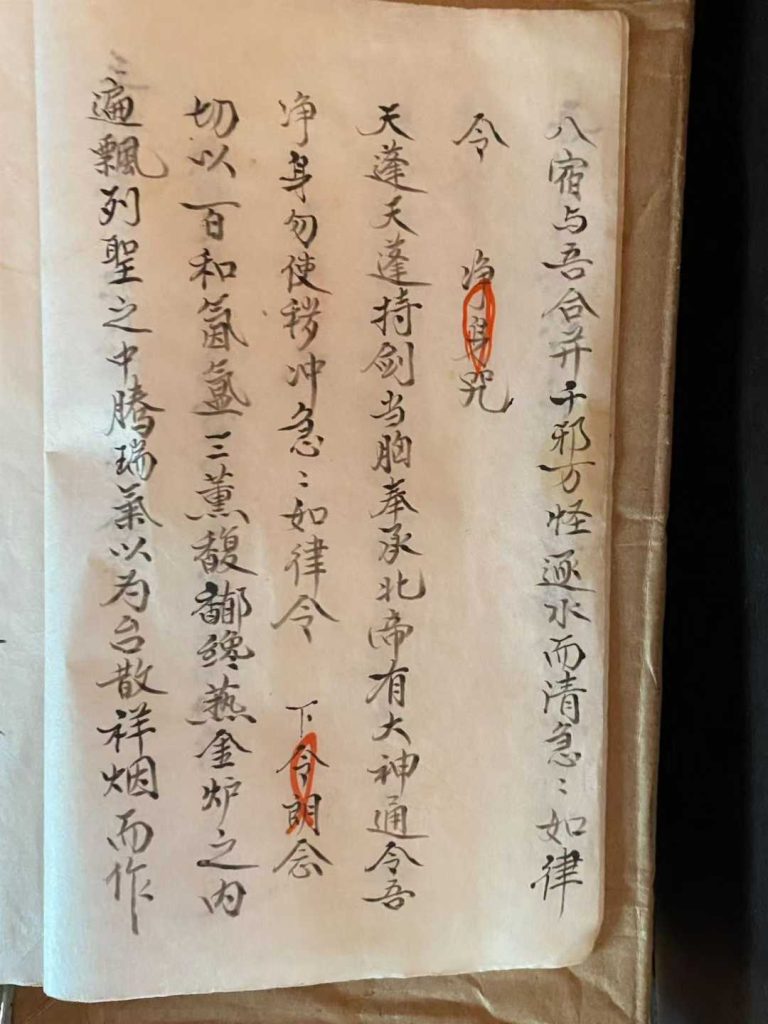 八宿与吾合并千邪万怪逐水而清急〻如律
令　净身咒
天蓬天蓬持剑当胸奉承北帝有大神通令吾
净身勿使秽冲急〻如律令　下令朗念
切以百和氤氲三薰馥郁纔爇金炉之内
遍飘列聖之中腾瑞氣以为台散祥烟而作